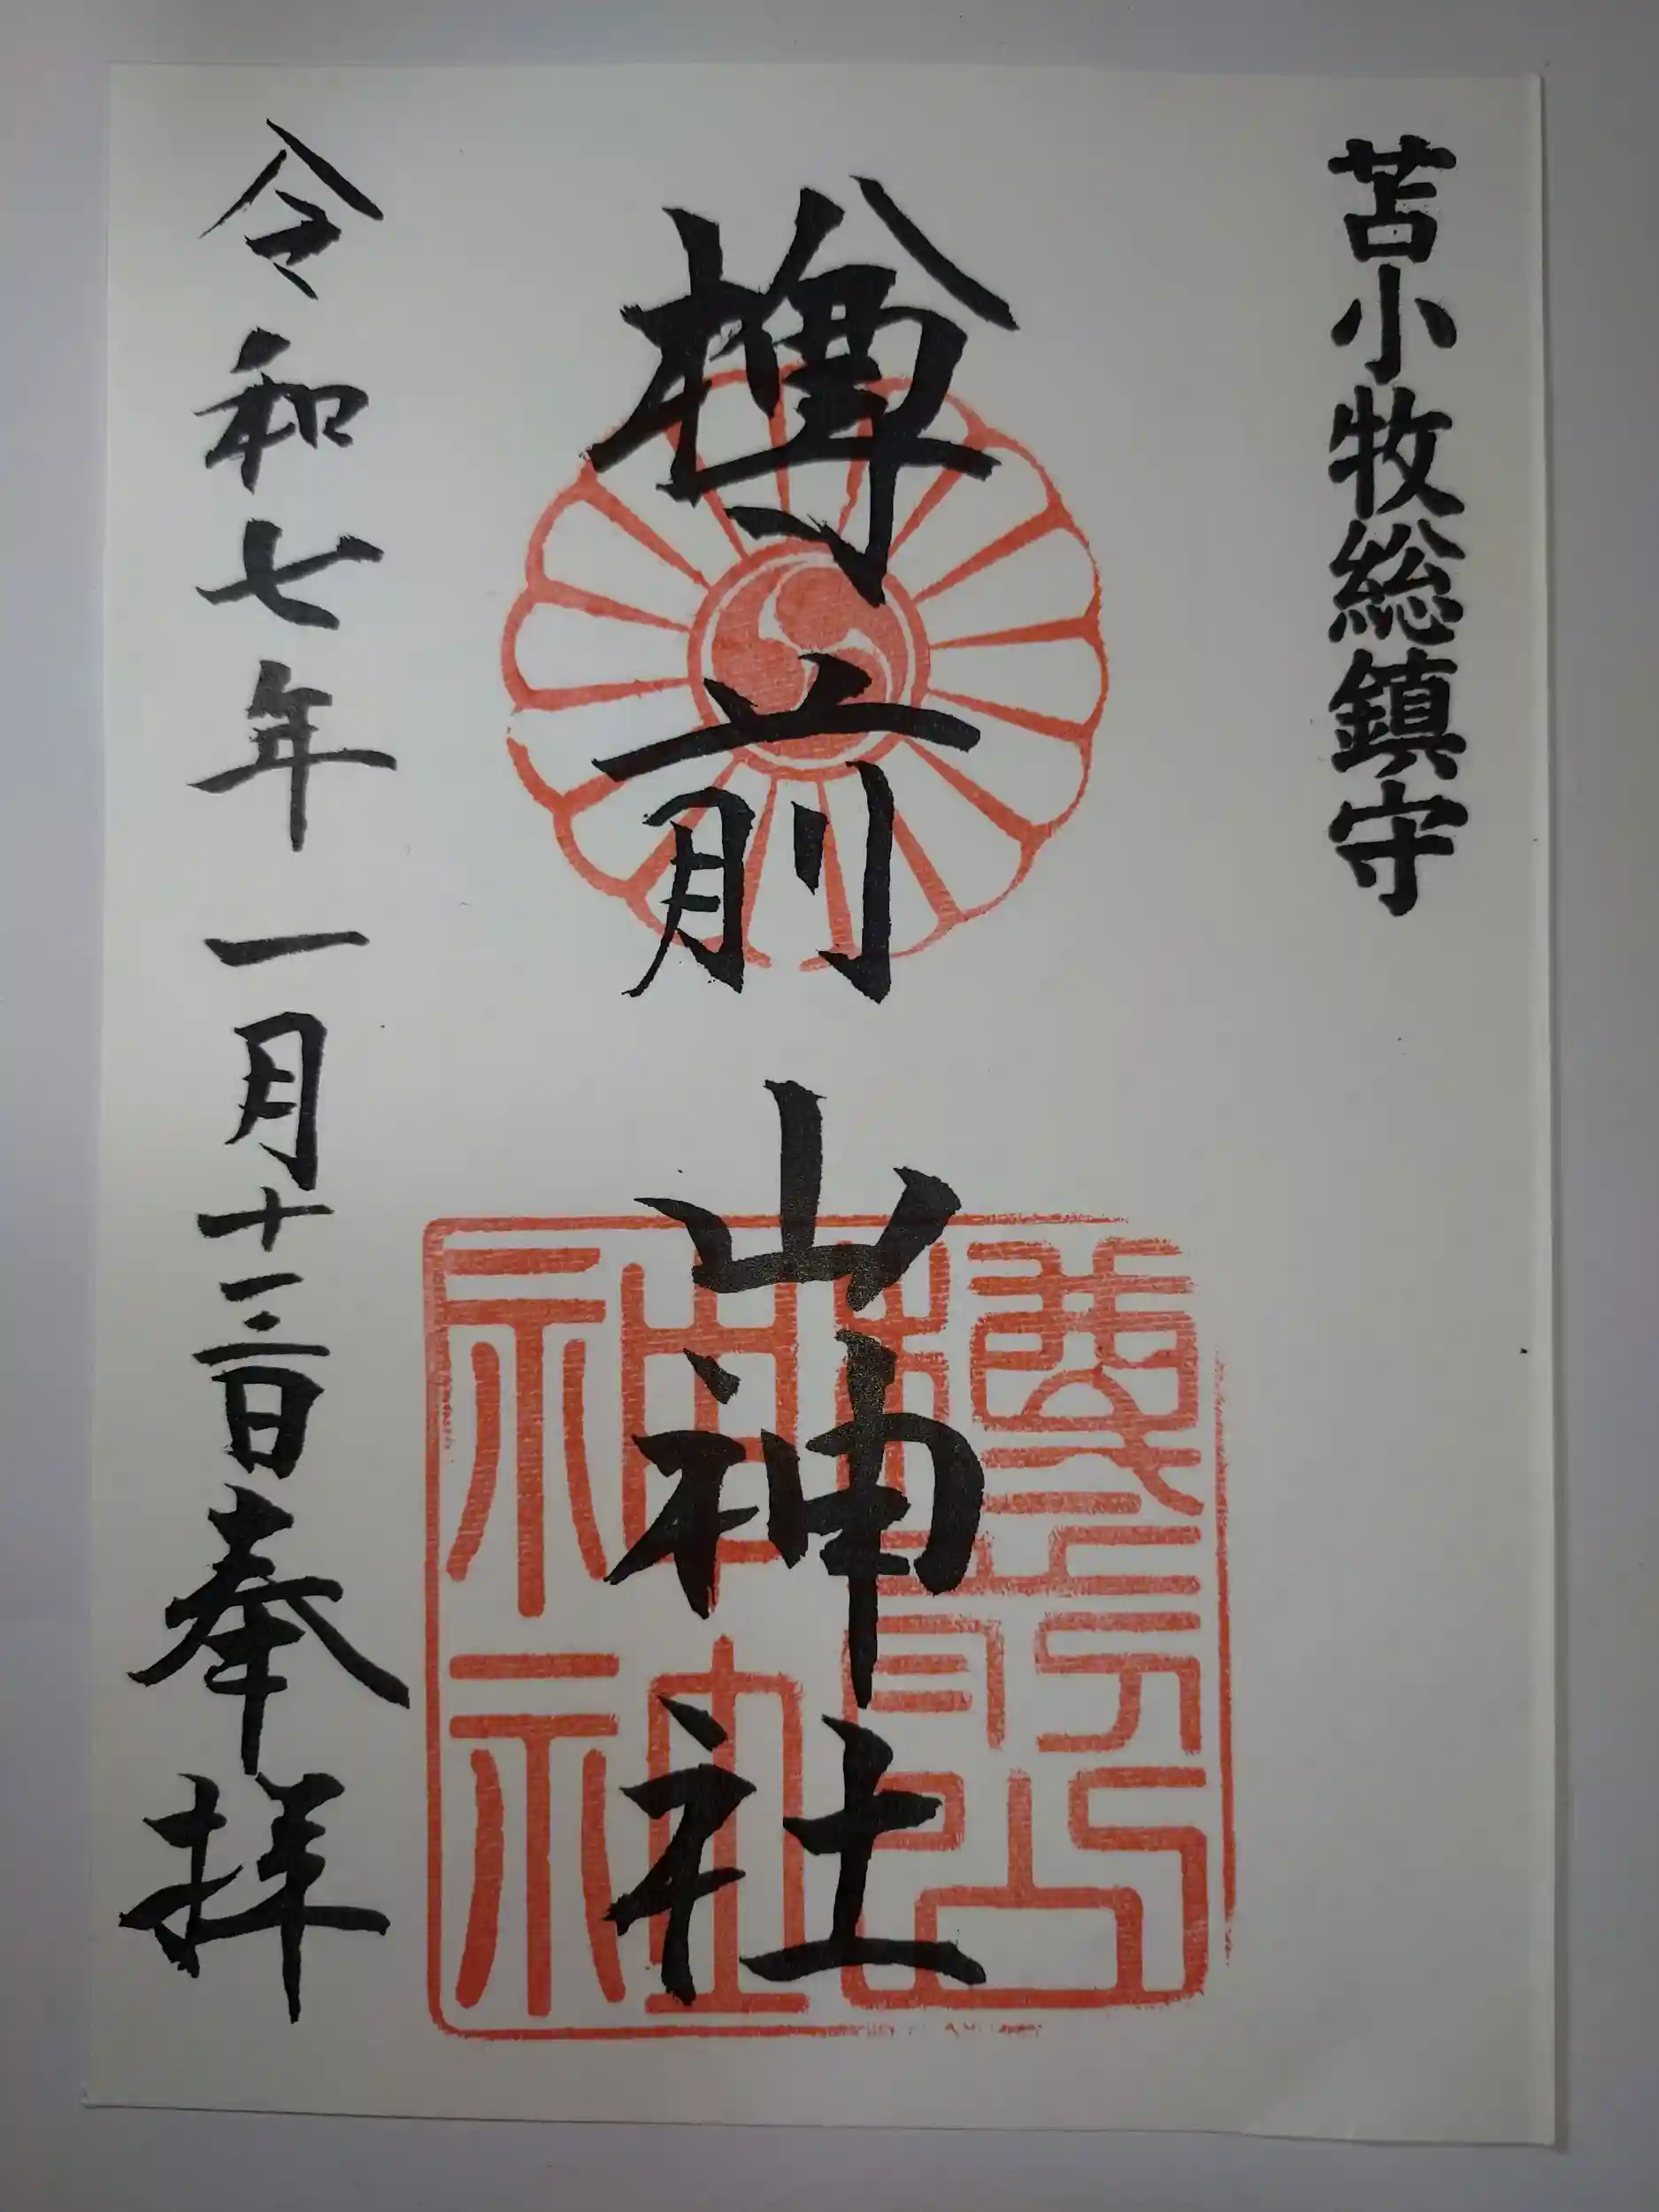 苫小牧総鎮守
樽前山神社
令和七年一月十三日奉拝
樽前山神社